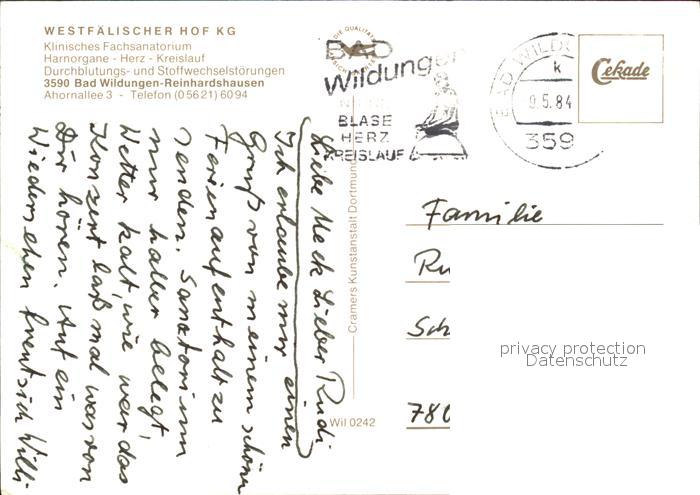 WESTFÄLISCHER HOF KG
Klinisches Fachsanatorium
Harnorgane - Herz - Kreislauf
Durchblutungs- und Stoffwechselstörungen
3590 Bad Wildungen-Reinhardshausen
Ahornallee 3 - Telefon (05621) 6094
BAD
Wildungen
BLASE
HERZ
KREISLAUF
BAD WILDU
k
9.5.84
359
Cekade
Liebe Meck Lieber Rudi
Ich erlaube mir einen
Gruß von meinem schönen
Ferienaufenthalt zu
senden. Sanatorium
nur halber belegt,
Wetter kalt, wie war das
Konzert laß mal was von
Dir hören. Auf ein
Wiedersehen freut sich Willi
Cramers Kunstanstalt Dortmund
Wil 0242
Familie
Ru
Sch
780
privacy protection
Datenschutz